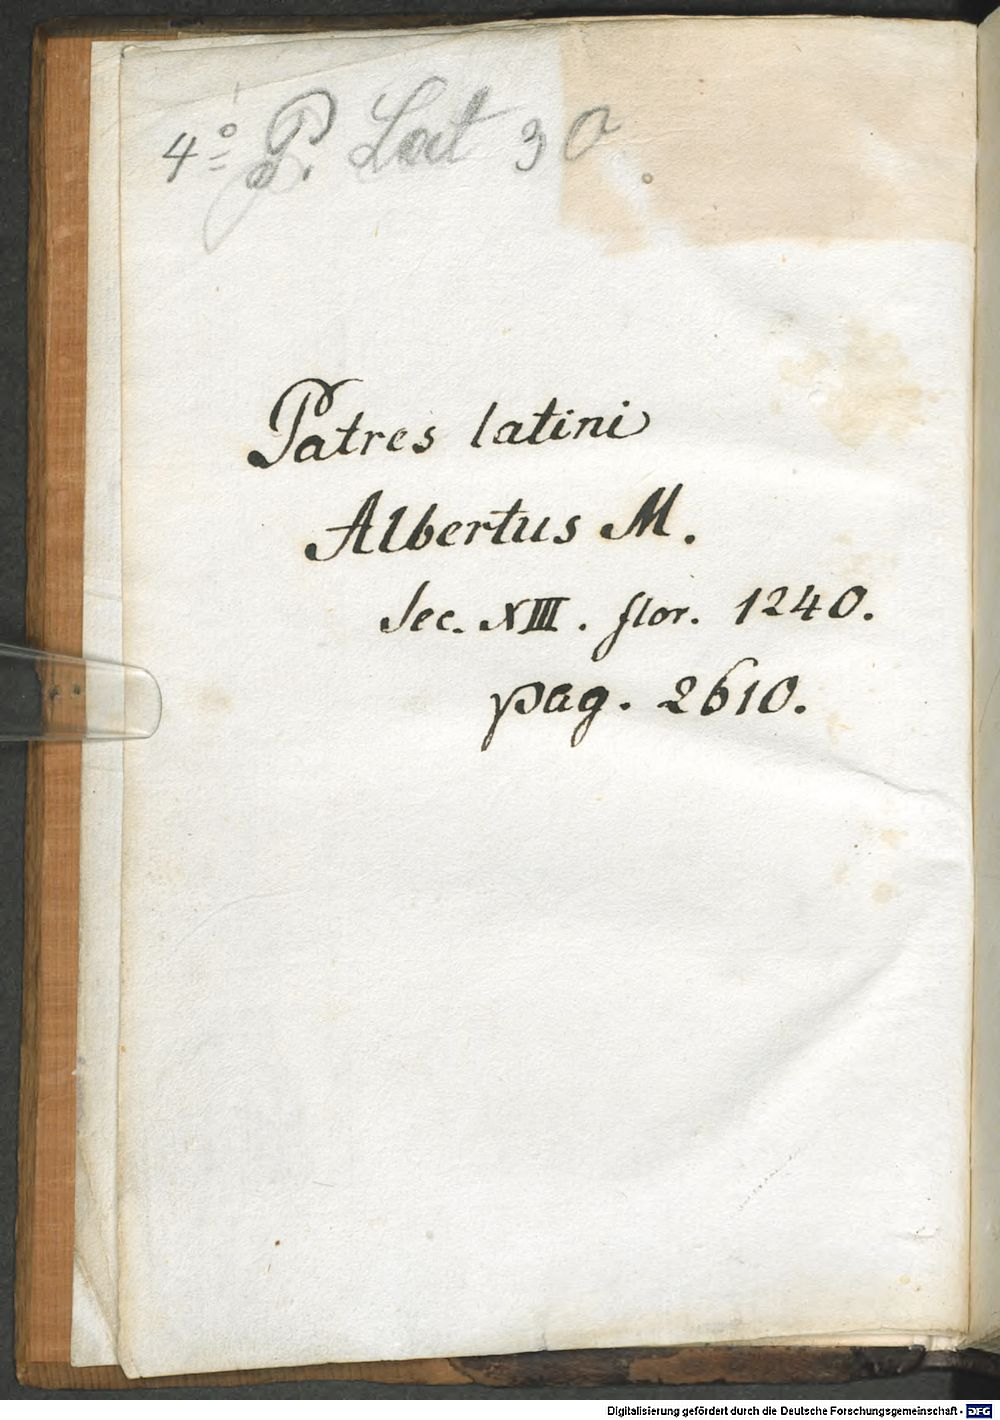 4° P. Lat 30
Patres latini
Albertus M.
Sec. XIII. flor. 1240.
pag. 2610.
Digitalisierung gefördert durch die Deutsche Forschungsgemeinschaft - DFG